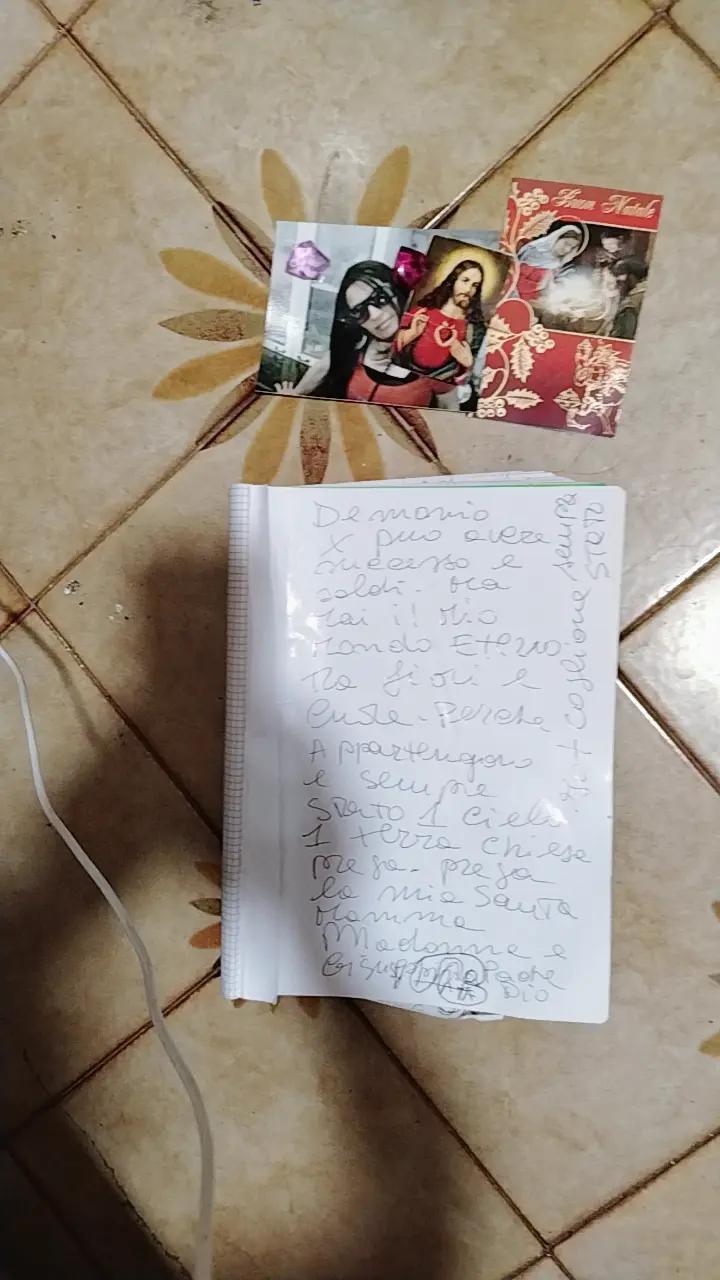 Buon Natale
Demonio
X può avere
successo e
soldi. Ma
Mai il Mio
Mondo Eterno
Tra fiori e
Perche
Appartengono
e sempre
Stato 1 Cielo.
1 terra Chiesa
prega. prega
la mia Santa
Mamma
Madonna e
Padre
Dio
+ coglione sempre
STATO